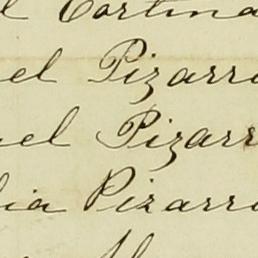 l Cortina
el Pizarr
uel Pizarr
lia Pizarr